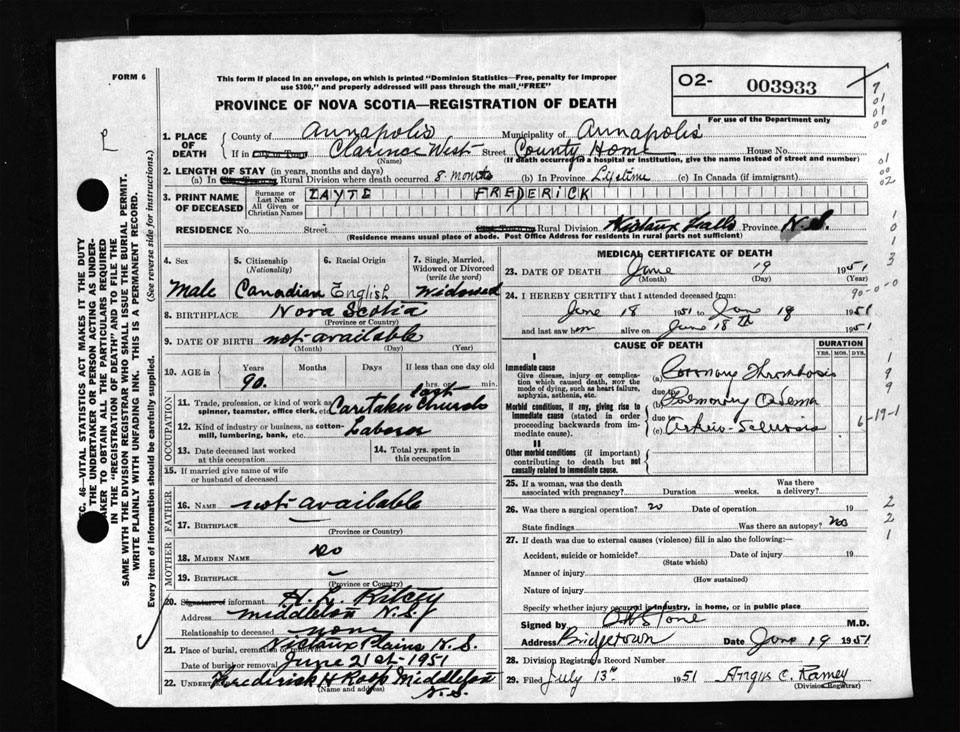 FORM 6
This form if placed in an envelope, on which is printed "Dominion Statistics—Free, penalty for improper
use $300," and properly addressed will pass through the mail "FREE"
O2- 003933
For use of the Department only
PROVINCE OF NOVA SCOTIA—REGISTRATION OF DEATH
1. PLACE OF DEATH
County of Annapolis Municipality of Annapolis
If in City or Town Clarence West Street County Home House No.
(Name) (If death occurred in a hospital or institution, give the name instead of street and number)
2. LENGTH OF STAY (in years, months and days)
(a) In City, Town or Rural Division where death occurred 8 months (b) In Province Lifetime (c) In Canada (if immigrant)
3. PRINT NAME OF DECEASED
Surname or Last Name ZAYTE FREDERICK
All Given or Christian Names
RESIDENCE No. Street Rural Division Nictaux Falls Province N.S.
(Residence means usual place of abode. Post Office Address for residents in rural parts not sufficient)
4. Sex
Male
5. Citizenship (Nationality)
Canadian
6. Racial Origin
English
7. Single, Married, Widowed or Divorced (write the word)
Widowed
8. BIRTHPLACE Nova Scotia
(Province or Country)
9. DATE OF BIRTH not available
(Month) (Day) (Year)
10. AGE in Years Months Days If less than one day
90. hrs. or min.
OCCUPATION
11. Trade, profession, or kind of work as spinner, teamster, office clerk, etc. Caretaker Church
12. Kind of industry or business, as cotton-mill, lumbering, bank, etc. Laborer
13. Date deceased last worked at this occupation
14. Total yrs. spent in this occupation
15. If married give name of wife or husband of deceased
FATHER
16. Name not available
17. Birthplace
(Province or Country)
MOTHER
18. Maiden Name do
19. Birthplace
(Province or Country)
20. Signature of informant H. L. Ritcey
Address Middleton N.S.
Relationship to deceased none
21. Place of burial, cremation or removal Nictaux Plains N.S.
Date of burial or removal June 21st 1951
22. Undertaker Frederick H Roop Middleton
N.S.
(Name and address)
MEDICAL CERTIFICATE OF DEATH
23. DATE OF DEATH June 19 1951
(Month) (Day) (Year)
24. I HEREBY CERTIFY that I attended deceased from:
June 18 1951 to June 18 1951
and last saw him alive on June 18th 1951
CAUSE OF DEATH
DURATION
YRS. MOS. DYS.
I
Immediate cause
Give disease, injury or complication which caused death, NOT the mode of dying, such as heart failure, asphyxia, asthenia, etc.
(a) Coronary Thrombosis
due to
Morbid conditions, if any, giving rise to immediate cause (stated in order proceeding backwards from immediate cause).
(b) Pulmonary Oedema
due to
(c) Arterio-Sclerosis
II
Other morbid conditions (if important) contributing to death but not causally related to immediate cause.
25. If a woman, was the death associated with pregnancy? Duration weeks. Was there a delivery?
26. Was there a surgical operation? no Date of operation 19
State findings Was there an autopsy? no
27. If death was due to external causes (violence) fill in also the following:
Accident, suicide or homicide? Date of injury 19
(State which)
Manner of injury
(How sustained)
Nature of injury
Specify whether injury occurred in industry, in home, or in public place
Signed by M.D.
Address Bridgetown Date June 19 1951
28. Division Registrar's Record Number
29. Filed July 13th 1951 Angus C. Ramey
(Division Registrar)
SEC. 46—VITAL STATISTICS ACT MAKES IT THE DUTY
OF THE UNDERTAKER OR PERSON ACTING AS UNDERTAKER TO OBTAIN ALL THE PARTICULARS REQUIRED
IN THE "REGISTRATION OF DEATH" AND TO FILE THE
SAME WITH THE DIVISION REGISTRAR WHO SHALL ISSUE THE BURIAL PERMIT.
WRITE PLAINLY WITH UNFADING INK. THIS IS A PERMANENT RECORD.
Every item of information should be carefully supplied. (See reverse side for instructions.)
90-0-0
6-19-1